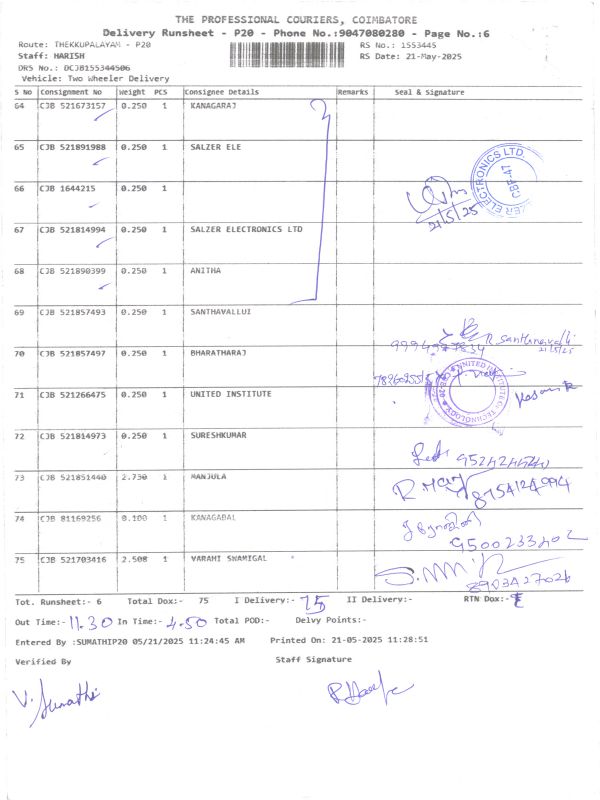 THE PROFESSIONAL COURIERS, COIMBATORE
Delivery Runsheet - P20 - Phone No.:9047080280 - Page No.:6
Route: THEKKUPALAYAM - P20 RS No.: 1553445
Staff: HARISH RS Date: 21-May-2025
DRS No.: DCJB155344506
Vehicle: Two Wheeler Delivery
S No Consignment No Weight PCS Consignee Details Remarks Seal & Signature
64 CJB 521673157 0.250 1 KANAGARAJ
65 CJB 521891988 0.250 1 SALZER ELE
66 CJB 1644215 0.250 1
21/5/25
67 CJB 521814994 0.250 1 SALZER ELECTRONICS LTD
68 CJB 521890399 0.250 1 ANITHA
69 CJB 521857493 0.250 1 SANTHAVALLUI
R. Santhinavalli
21/5/25
70 CJB 521857497 0.250 1 BHARATHARAJ
71 CJB 521266475 0.250 1 UNITED INSTITUTE
72 CJB 521814973 0.250 1 SURESHKUMAR
73 CJB 521851440 2.730 1 MANJULA
8754124994
74 CJB 81169256 0.100 1 KANAGABAL
9500233402
75 CJB 521703416 2.508 1 VARAHI SWAMIGAL
8903427026
Tot. Runsheet:- 6 Total Dox:- 75 I Delivery:- 75 II Delivery:- RTN Dox:-
Out Time:- 11.30 In Time:- 4.50 Total POD:- Delvy Points:-
Entered By :SUMATHIP20 05/21/2025 11:24:45 AM Printed On: 21-05-2025 11:28:51
Verified By Staff Signature
V. Sumathi